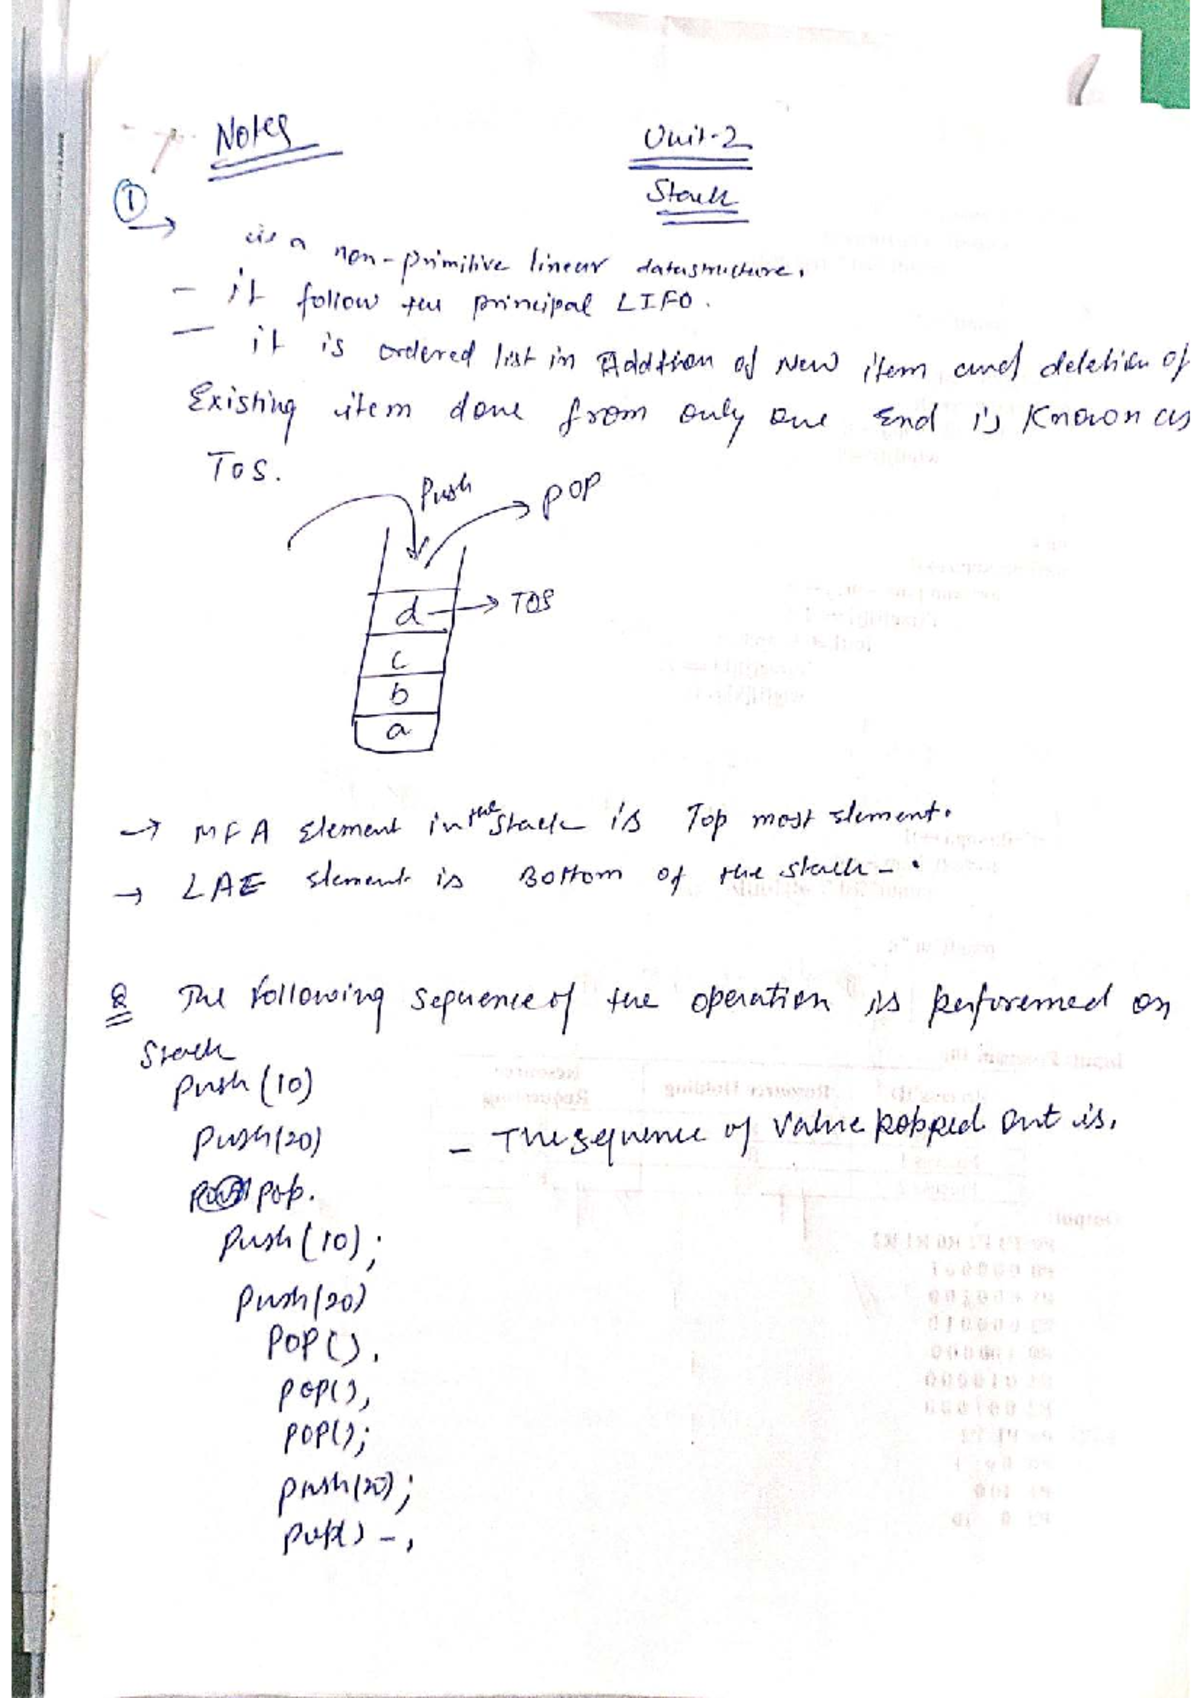 Notes
Unit-2
Stack
①
→ is a non-primitive linear datastructure.
- it follow the principal LIFO.
- it is ordered list in Addition of New item and deletion of
Existing item done from only one End is Known as
TOS.
Push
POP
d → TOS
c
b
a
→ MFA Element in the Stack is Top most Element.
→ LAE Element is Bottom of the stack-.
Q The following sequence of the operation is performed on
Stack
Push(10)
Push(20) - The sequence of value popped out is.
pop.
Push(10);
Push(20)
POP().
POP(),
POP();
push(20);
pop() -,